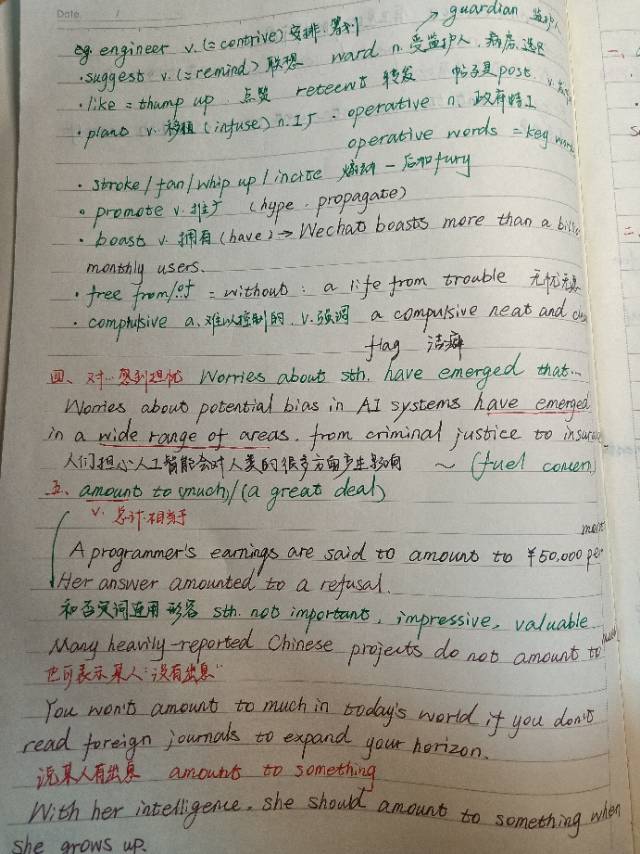 Date. /
→ guardian 监护人
eg. engineer v. (= contrive) 安排. 筹划
·suggest v. (= remind) 联想 ward n. 受监护人. 病房. 选区
·like = thump up. 点赞 reteent 转发 帖子是post.
·plant v. 移植 (infuse) n.工厂 · operative n. 政府特工
operative words = key
· stroke / fan / whip up / incite 煽动 — 后加fury
· promote v. 推广 (hype. propagate)
· boast v. 拥有 (have) → Wechat boasts more than a
monthly users.
· free from/of = without : a life from trouble 无忧无虑
· complusive a. 难以控制的. v. 强调 a compulsive neat and
flag 洁癖
四、对…感到担忧 Worries about sth. have emerged that…
Worries about potential bias in AI systems have emerged
in a wide range of areas. from criminal justice to
人们担心人工智能会对人类的很多方面产生影响 ~ (fuel concern)
五、amount to (much) / (a great deal)
v. 总计. 相当于
A programmer's earnings are said to amount to ¥50,000 per
Her answer amounted to a refusal.
和否定词连用 形容 sth. not important, impressive, valuable
Many heavily-reported Chinese projects do not amount to
也可表示某人"没有出息"
You won't amount to much in today's world if you don't
read foreign journals to expand your horizon.
说某人有出息 amount to something
With her intelligence. she should amount to something when
she grows up.